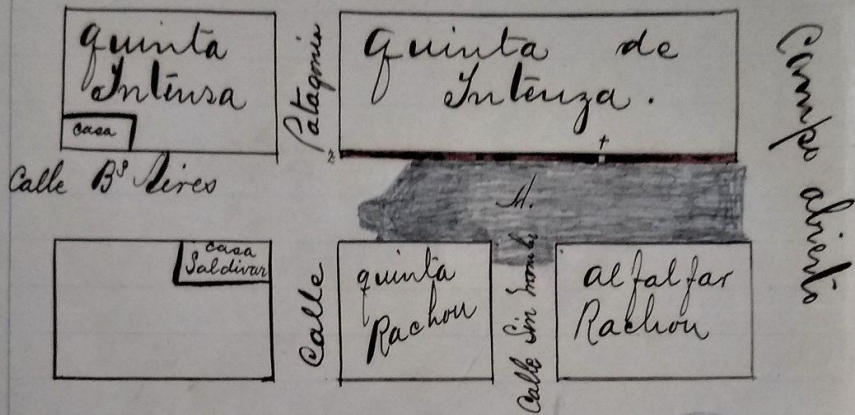 quinta
Intensa
casa
Patagonia
quinta de
Intenza.
Campo abierto
Calle Bs Aires
z
M.
casa
Saldivar
Calle
quinta
Rachou
Calle Sin nombre
alfalfar
Rachou